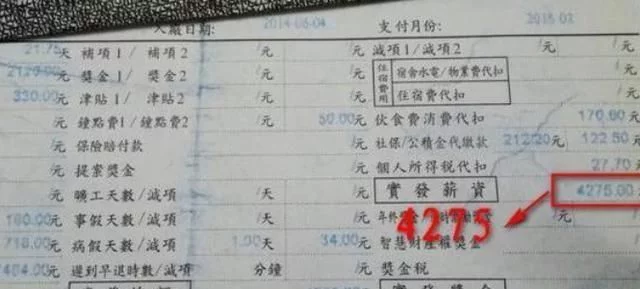 入廠日期: 2014-06-04 支付月份: 2015-02
21.75天 補項1/ 補項2 /元 減項1/減項2 /元
元 獎金1/ 獎金2 /元 住宿費用 宿舍水電/物業費代扣 /元
330.00元 津貼1/ 津貼2 /元 住宿費代扣 元
元 鐘點費1/鐘點費2 50.00元 伙食費消費代扣 170.60元
元 保險賠付款 元 社保/公積金代繳款 212/20元 122.50元
元 提案獎金 元 個人所得稅代扣 27.70元
元 曠工天數/減項 /天 /元 實發薪資 4275.00
160.00元 事假天數/減項 /天 /元 4275 /元
710.00元 病假天數/減項 1.00天 34.00元 智慧財產權獎金 元
元 遲到早退時數/減項 分鐘 /元 獎金稅